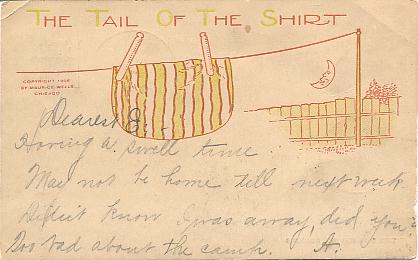 THE TAIL OF THE SHIRT
COPYRIGHT 1906
BY MAURICE WELLS
CHICAGO
Dearest E. -
Having a swell time
May not be home till next week
Didn't know I was away, did you?
Too bad about the camp. A.